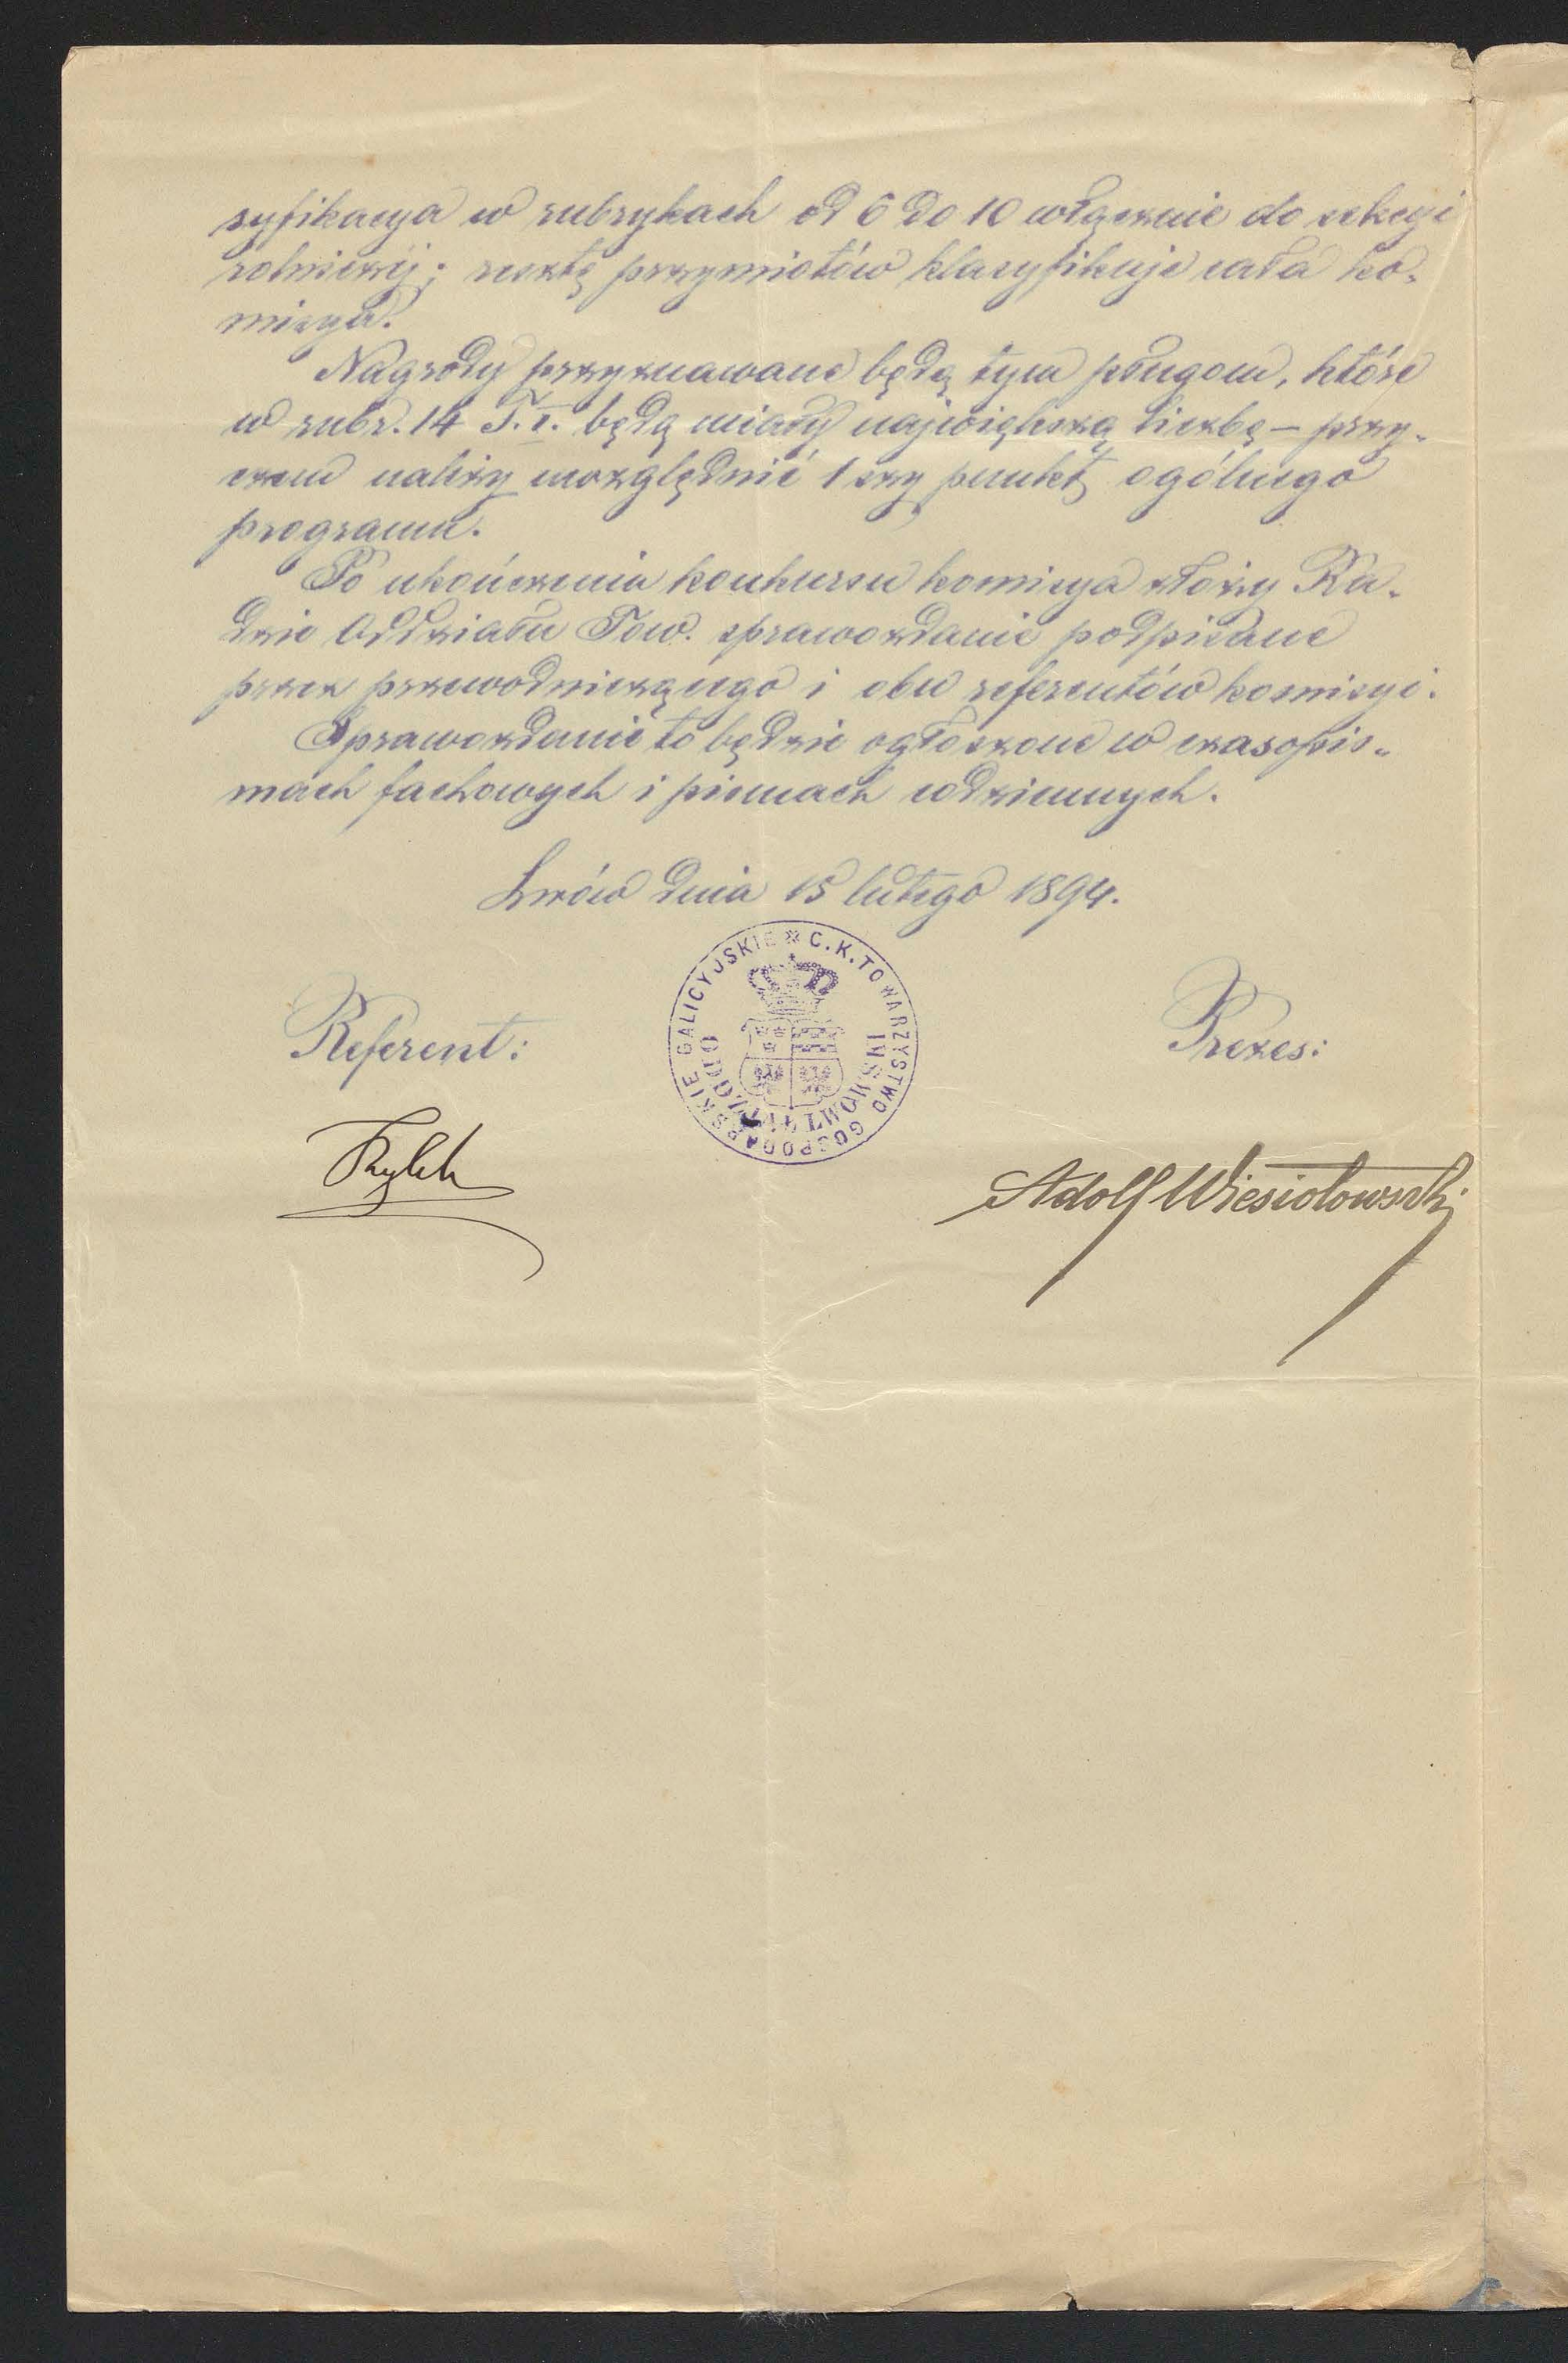 syfikacya w rubrykach od 6 do 10 włącznie do sekcyi
rolniczéj; resztę przymiotów klasyfikuje cała ko-
misya.
Nagrody przyznawane będą tym pługom, które
w rubr. 14 T. I. będą miały największą liczbę – przy-
czem należy uwzględnić 1szy punkt ogólnego
programu.
Po ukończeniu konkursu komisya złoży Ra-
dzie Oddziału Tow. sprawozdanie podpisane
przez przewodniczącego i obu referentów komisyi.
Sprawozdanie to będzie ogłoszone w czasopis-
mach fachowych i pismach codziennych.
Lwów dnia 15 lutego 1894.
C. K. TOWARZYSTWO GOSPODARSKIE GALICYJSKIE
ODDZIAŁ LWOWSKI
Referent:
Prezes:
Adolf Wiesiołowski